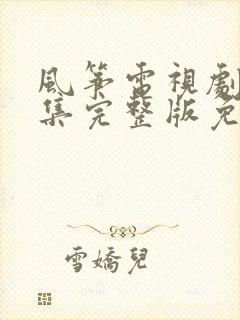 風箏電視劇
集完整版免
雪嬌兒